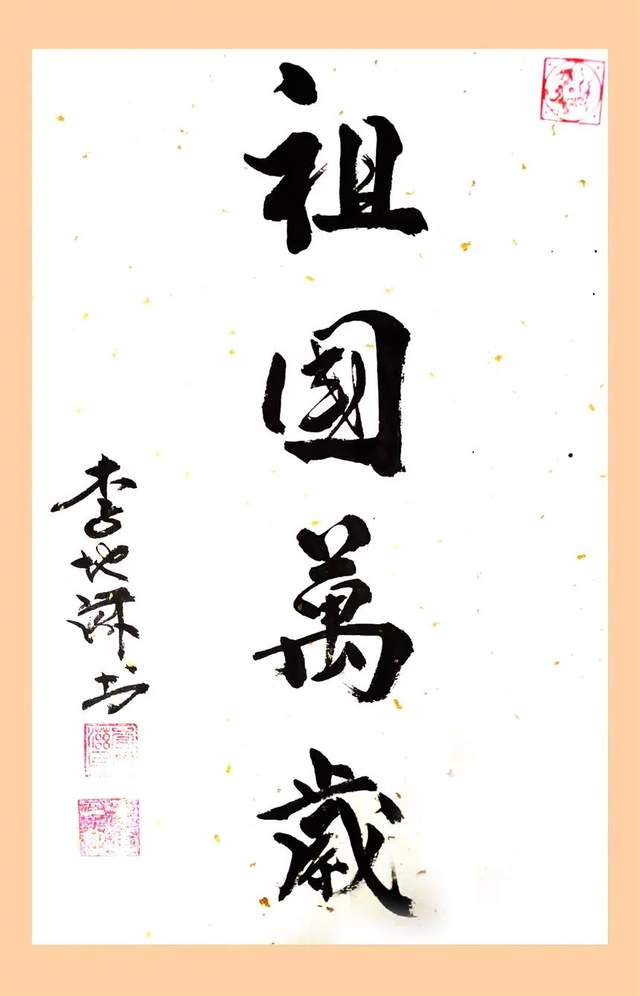 祖國萬歲
李地球书